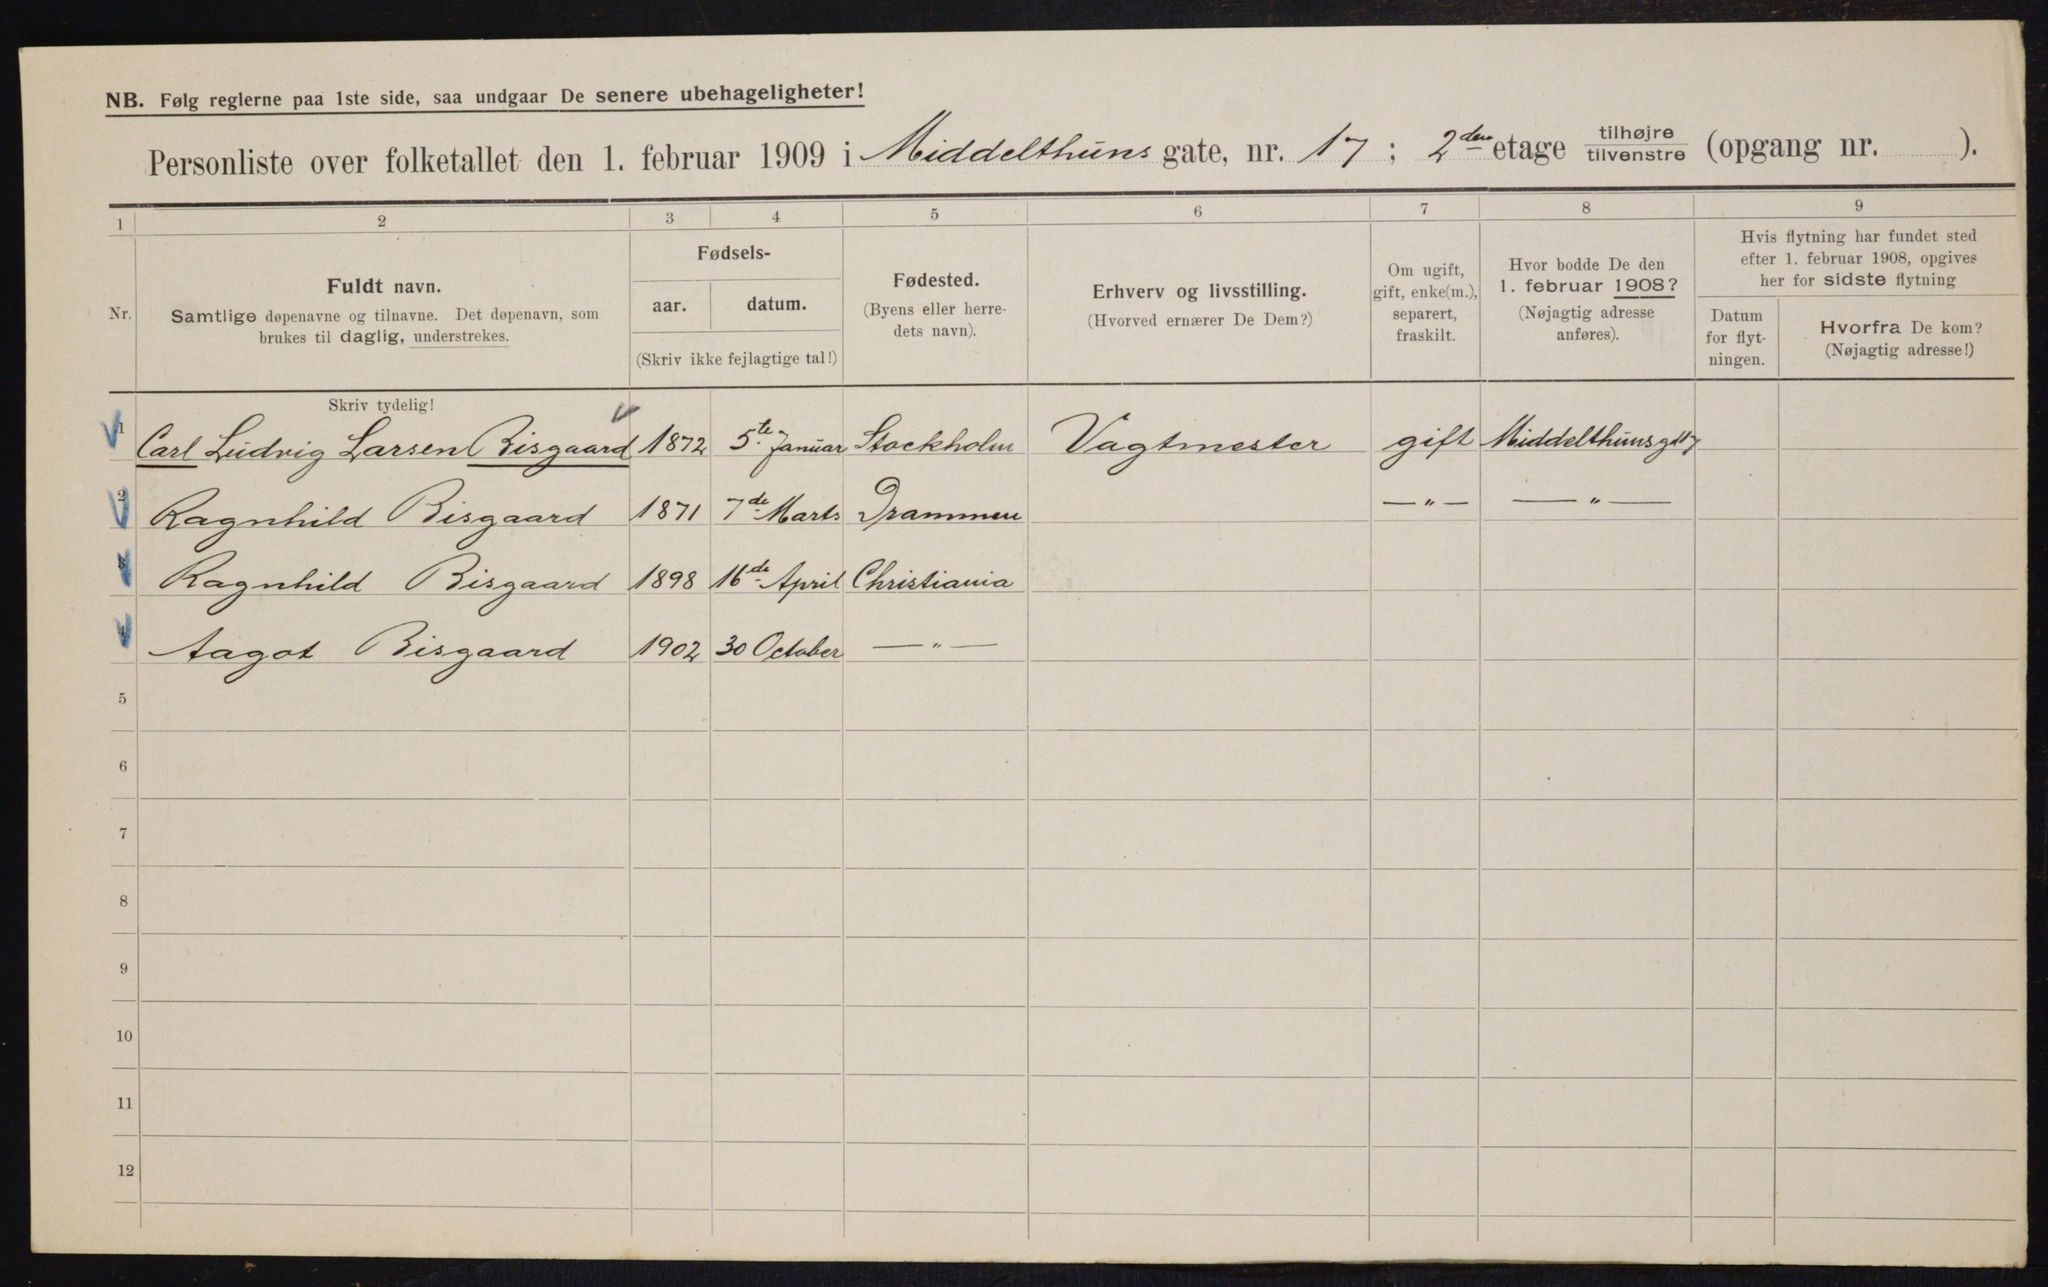 NB. Følg reglerne paa 1ste side, saa undgaar De senere ubehageligheter!
Personliste over folketallet den 1. februar 1909 i Middelthuns gate, nr. 17; 2den etage tilhøjre tilvenstre (opgang nr. ).
1 2 3 4 5 6 7 8 9
Nr.
Fuldt navn.
Samtlige døpenavne og tilnavne. Det døpenavn, som
brukes til daglig, understrekes.
Fødsels-
aar. datum.
(Skriv ikke fejlagtige tal!)
Fødested.
(Byens eller herre-
dets navn).
Erhverv og livsstilling.
(Hvorved ernærer De Dem?)
Om ugift,
gift, enke(m.),
separert,
fraskilt.
Hvor bodde De den
1. februar 1908?
(Nøjagtig adresse
anføres).
Hvis flytning har fundet sted
efter 1. februar 1908, opgives
her for sidste flytning
Datum
for flyt-
ningen.
Hvorfra De kom?
(Nøjagtig adresse!)
Skriv tydelig!
1 Carl Ludvig Larsen Bisgaard 1872 5te Januar Stockholm Vagtmester gift Middelthunsgt 17
2 Ragnhild Bisgaard 1871 7de Marts Drammen —„— —„—
3 Ragnhild Bisgaard 1898 16de April Christiania
4 Aagot Bisgaard 1902 30 October —„—
5
6
7
8
9
10
11
12